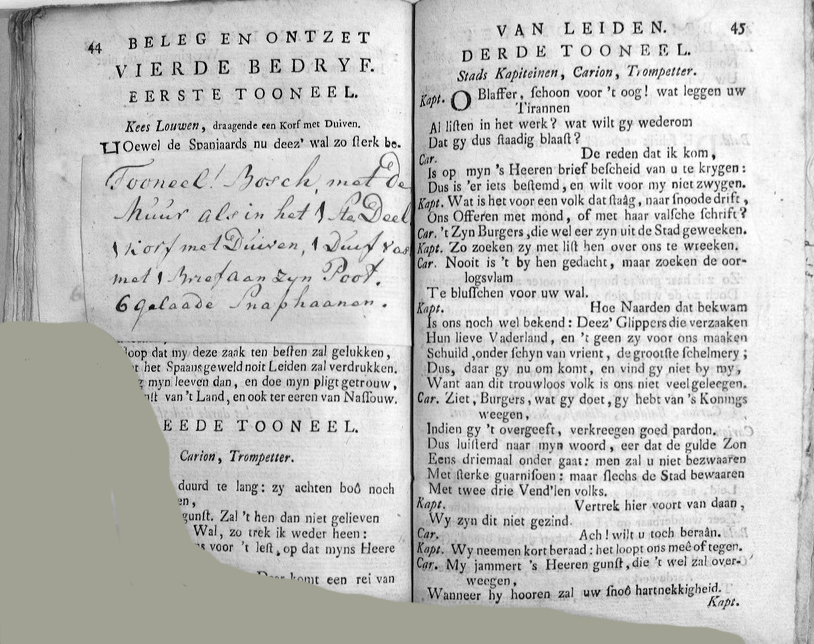 44 BELEG EN ONTZET
VIERDE BEDRYF.
EERSTE TOONEEL.
Kees Louwen, draagende een Korf met Duiven.
HOewel de Spanjaards nu deez' wal zo sterk be.
Tooneel! Bosch, met de
Muur als in het 1ste Deel
1 Korf met Duiven, 1 Duif vas
met 1 Brief aan zyn Poot.
6 gelaade Snaphaanen.
loop dat my deze zaak ten besten zal gelukken,
het Spaans geweld noit Leiden zal verdrukken.
myn leeven dan, en doe myn pligt getrouw,
van 't Land, en ook ter eeren van Nassouw.
EEDE TOONEEL.
Carion, Trompetter.
duurd te lang: zy achten boô noch
en,
gunst. Zal 't hen dan niet gelieven
Wal, zo trek ik weder heen:
voor 't lest, op dat myns Heere
komt een rei van
VAN LEIDEN. 45
DERDE TOONEEL.
Stads Kapiteinen, Carion, Trompetter.
Kapt. O Blaffer, schoon voor 't oog! wat leggen uw
Tirannen
Al listen in het werk? wat wilt gy wederom
Dat gy dus staadig blaast?
Car. De reden dat ik kom,
Is op myn 's Heeren brief bescheid van u te krygen:
Dus is 'er iets bestemd, en wilt voor my niet zwygen.
Kapt. Wat is het voor een volk dat staâg, naar snoode drift,
Ons Offeren met mond, of met haar valsche schrift?
Car. 't Zyn Burgers, die wel eer zyn uit de Stad geweeken.
Kapt. Zo zoeken zy met list hen over ons te wreeken.
Car. Nooit is 't by hen gedacht, maar zoeken de oor-
logsvlam
Te blusschen voor uw wal.
Kapt. Hoe Naarden dat bekwam
Is ons noch wel bekend: Deez' Glippers die verzaaken
Hun lieve Vaderland, en 't geen zy voor ons maaken
Schuild, onder schyn van vrient, de grootste schelmery;
Dus, daar gy nu om komt, en vind gy niet by my,
Want aan dit trouwloos volk is ons niet veel geleegen.
Car. Ziet, Burgers, wat gy doet, gy hebt van 's Konings
weegen,
Indien gy 't overgeeft, verkreegen goed pardon.
Dus luisterd naar myn woord, eer dat de gulde Zon
Eens driemaal onder gaat: men zal u niet bezwaaren
Met sterke guarnisoen: maar slechs de Stad bewaaren
Met twee drie Vend'len volks.
Kapt. Vertrek hier voort van daan,
Wy zyn dit niet gezind.
Car. Ach! wilt u toch beraân.
Kapt. Wy neemen kort beraad: het loopt ons meê of tegen.
Car. My jammert 's Heeren gunst, die 't wel zal over-
weegen,
Wanneer hy hooren zal uw snoô hartnekkigheid.
Kapt.